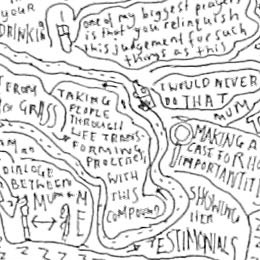 YOUR
DRINKIN
one of my biggest prayers
is that you relinquish
this judgement for such
things as this
I WOULD NEVER
DO THAT
MUM
FROM
TO GRASS
TAKING
PEOPLE
THROUGH
LIFE TRANS-
FORMING
PROCESSES
WITH
THIS
COMPOUND
MAKING A
CASE FOR HO
IMPORTANT IT I
AM an
DIALOGE
BETWEEN
MUM + M
E
SHOWING
HER
TESTIMONIALS